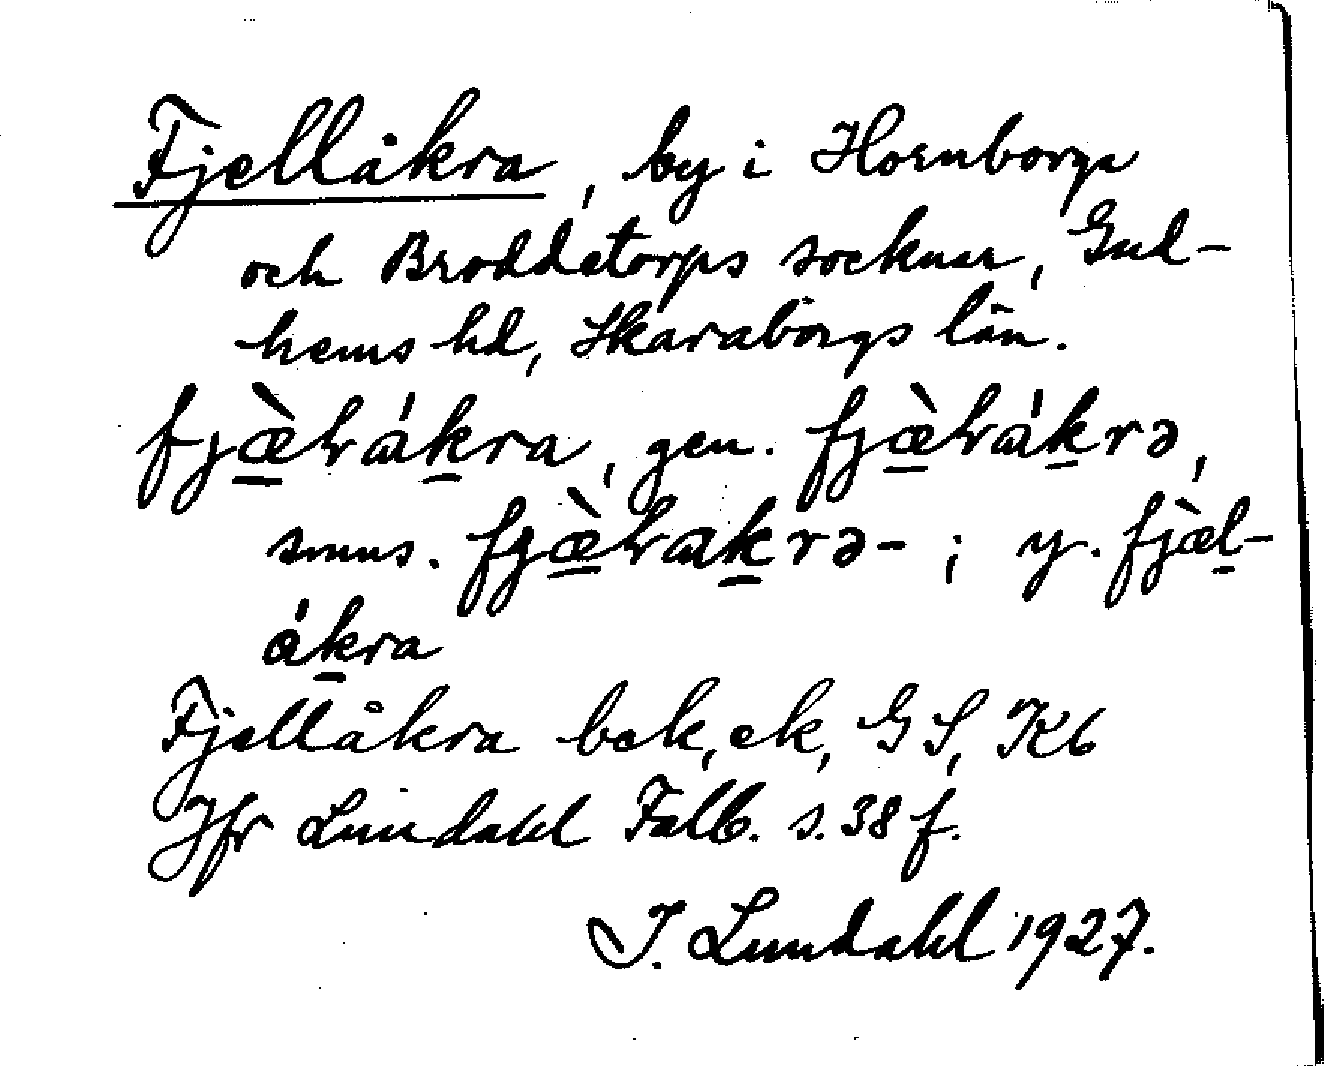 Fjellåkra, by i Hornborga
och Broddetorps socknar, Gud-
hems hd, Skaraborgs län.
fjæ̀ƚákra, gen. fjæ̀ƚákrə,
smns. fjæ̀ƚakrə-; y. fjæ̀l-
ákra
Fjellåkra bek, ek, GS, Kb
Jfr Lundahl Falb. s. 38 f.
I. Lundahl 1927.